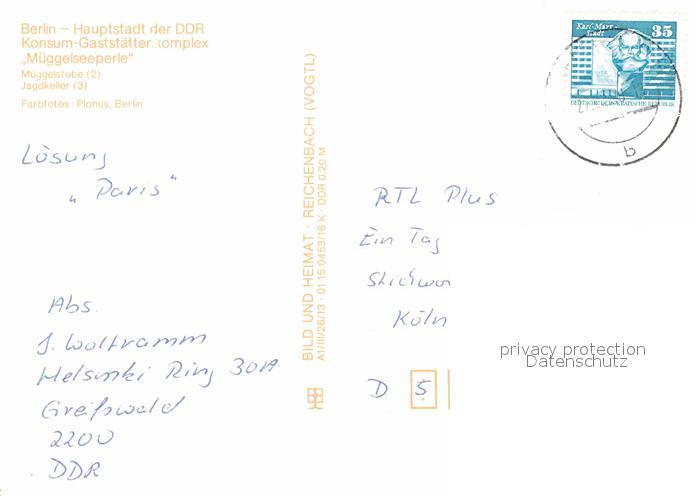 Berlin – Hauptstadt der DDR
Konsum-Gaststättenkomplex
„Müggelseeperle"
Müggelstube (2)
Jagdkeller (3)
Farbfotos: Plonus, Berlin
Lösung
„Paris"
Abs.
J. Wolframm
Helsinki Ring 30A
Greifswald
2200
DDR
BILD UND HEIMAT · REICHENBACH (VOGTL)
A1/III/26/13 · 01 15 0453/16 K · DDR 0,20 M
Karl-Marx-
Stadt
35
DEUTSCHE DEMOKRATISCHE REPUBLIK
b
RTL Plus
Ein Tag
Köln
D 5
privacy protection
Datenschutz